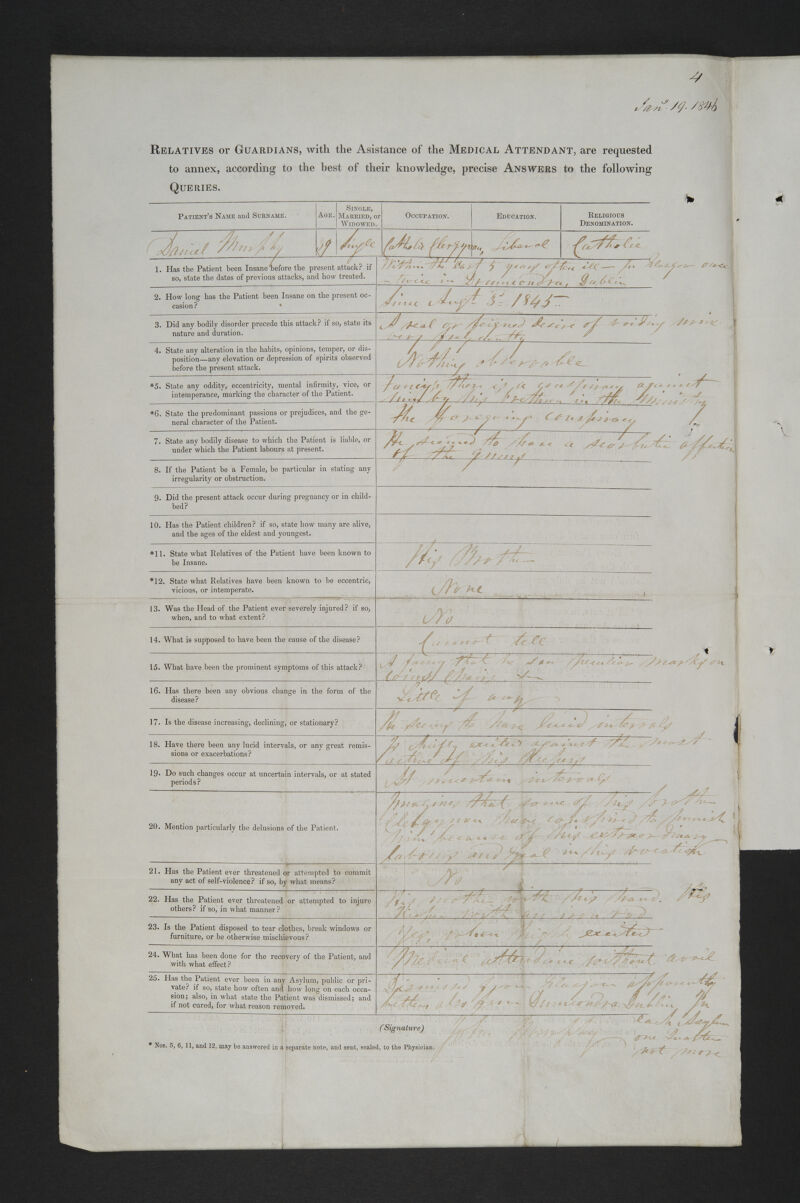 4
Jany. 19. 1846
RELATIVES or GUARDIANS, with the Asistance of the MEDICAL ATTENDANT, are requested
to annex, according to the best of their knowledge, precise ANSWERS to the following
QUERIES.
PATIENT'S NAME and SURNAME. AGE. SINGLE, MARRIED, or WIDOWED. OCCUPATION. EDUCATION. RELIGIOUS DENOMINATION.
Daniel Murphy 49 Single Catholic Clergyman, Liberal Catholic
1. Has the Patient been Insane before the present attack? if
so, state the dates of previous attacks, and how treated.
Within the last 5 years often ill — In Glasgow once
– twice in Drumcondra, Dublin
2. How long has the Patient been Insane on the present oc-
casion?
Since Augt 3d 1845
3. Did any bodily disorder precede this attack? if so, state its
nature and duration.
A real or feigned desire of voiding urine
very frequently
4. State any alteration in the habits, opinions, temper, or dis-
position—any elevation or depression of spirits observed
before the present attack.
Nothing observable
*5. State any oddity, eccentricity, mental infirmity, vice, or
intemperance, marking the character of the Patient.
Fancies there is a conspiracy against
him by his brethren in the Ministry
*6. State the predominant passions or prejudices, and the ge-
neral character of the Patient.
The foregoing conspiracy
7. State any bodily disease to which the Patient is liable, or
under which the Patient labours at present.
He seemed to have a scorbutic affection
of the gums
8. If the Patient be a Female, be particular in stating any
irregularity or obstruction.
9. Did the present attack occur during pregnancy or in child-
bed?
10. Has the Patient children? if so, state how many are alive,
and the ages of the eldest and youngest.
*11. State what Relatives of the Patient have been known to
be Insane.
His Brother
*12. State what Relatives have been known to be eccentric,
vicious, or intemperate.
None
13. Was the Head of the Patient ever severely injured? if so,
when, and to what extent?
No
14. What is supposed to have been the cause of the disease?
Cannot tell
15. What have been the prominent symptoms of this attack?
A fancy that he saw peculiar marks on
coins, chairs &c
16. Has there been any obvious change in the form of the
disease?
Little if any
17. Is the disease increasing, declining, or stationary?
He seems to have lucid intervals
18. Have there been any lucid intervals, or any great remis-
sions or exacerbations?
Is chiefly excited against the most
active of his
19. Do such changes occur at uncertain intervals, or at stated
periods?
At uncertain intervals
20. Mention particularly the delusions of the Patient.
Imagines that some of his brother
Clergymen have conspired to punish
him because of his extraordinary
labours and zeal in his vocation
21. Has the Patient ever threatened or attempted to commit
any act of self-violence? if so, by what means?
No
22. Has the Patient ever threatened or attempted to injure
others? if so, in what manner?
His mother with his hand. His
with an iron rod
23. Is the Patient disposed to tear clothes, break windows or
furniture, or be otherwise mischievous?
Yes, when high excited
24. What has been done for the recovery of the Patient, and
with what effect?
Medical attendance without avail
25. Has the Patient ever been in any Asylum, public or pri-
vate? if so, state how often and how long on each occa-
sion; also, in what state the Patient was dismissed; and
if not cured, for what reason removed.
Dismissed from Glasgow apparently
better, also from Drumcondra, Dublin In
each Asylum
one Quarter
not more
(Signature)
* Nos. 5, 6, 11, and 12, may be answered in a separate note, and sent, sealed, to the Physician.